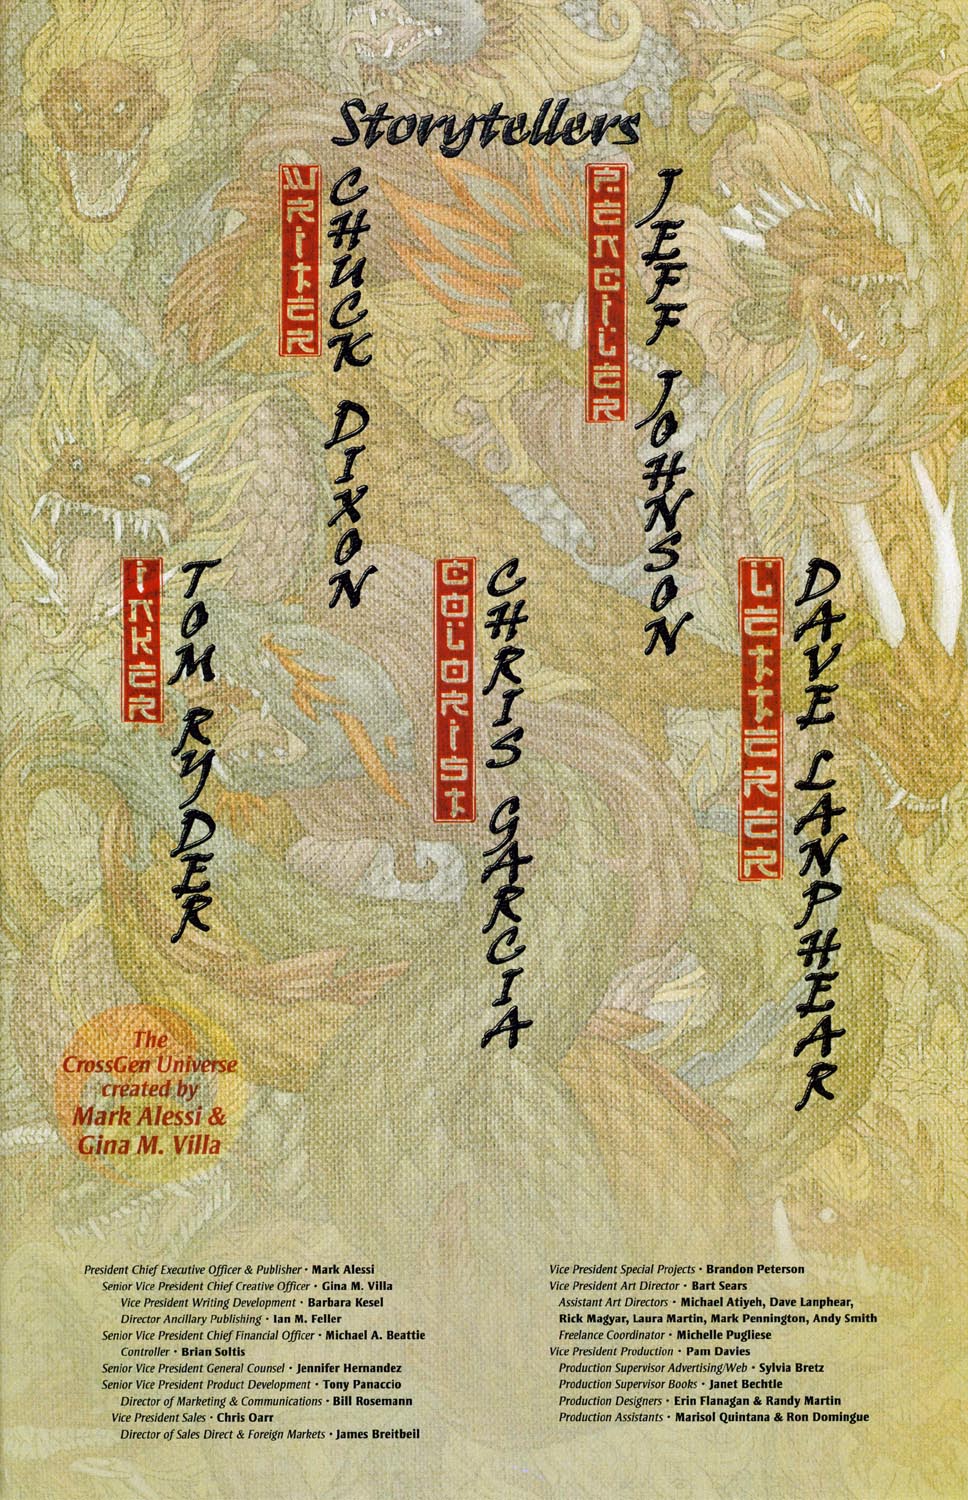 Storytellers
WRITER
CHUCK DIXON
PENCILER
JEFF JOHNSON
INKER
TOM RYDER
COLORIST
CHRIS GARCIA
LETTERER
DAVE LANPHEAR
The
CrossGen Universe
created by
Mark Alessi &
Gina M. Villa
President Chief Executive Officer & Publisher • Mark Alessi
Senior Vice President Chief Creative Officer • Gina M. Villa
Vice President Writing Development • Barbara Kesel
Director Ancillary Publishing • Ian M. Feller
Senior Vice President Chief Financial Officer • Michael A. Beattie
Controller • Brian Soltis
Senior Vice President General Counsel • Jennifer Hernandez
Senior Vice President Product Development • Tony Panaccio
Director of Marketing & Communications • Bill Rosemann
Vice President Sales • Chris Oarr
Director of Sales Direct & Foreign Markets • James Breitbeil
Vice President Special Projects • Brandon Peterson
Vice President Art Director • Bart Sears
Assistant Art Directors • Michael Atiyeh, Dave Lanphear,
Rick Magyar, Laura Martin, Mark Pennington, Andy Smith
Freelance Coordinator • Michelle Pugliese
Vice President Production • Pam Davies
Production Supervisor Advertising/Web • Sylvia Bretz
Production Supervisor Books • Janet Bechtle
Production Designers • Erin Flanagan & Randy Martin
Production Assistants • Marisol Quintana & Ron Domingue